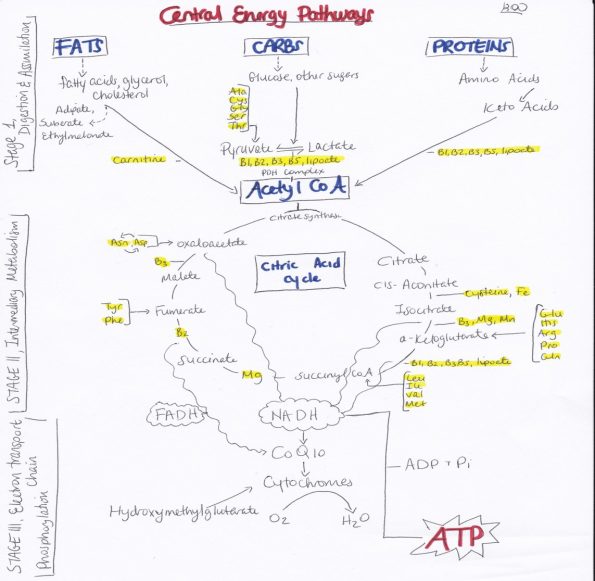 Central Energy Pathways
FATS
CARBS
PROTEINS
Stage 1,
Digestion & Assimilation
fatty acids, glycerol,
cholesterol
Adipate,
Suberate
Ethylmalonate
Glucose, other sugars
Ala
Cys
Gly
Ser
Thr
Amino Acids
Keto Acids
Pyruvate
Lactate
B1, B2, B3, B5, lipoate
PDH complex
Carnitine
B1, B2, B3, B5, lipoate
Acetyl CoA
Citrate synthase
STAGE II, Intermediary Metabolism
Citric Acid
cycle
Asn, Asp
oxaloacetate
B3
Malate
Tyr
Phe
Fumerate
B2
Succinate
Mg
Succinyl CoA
Citrate
Cis-Aconitate
Cysteine, Fe
Isocitrate
B3, Mg, Mn
α-Ketogluterate
Glu
His
Arg
Pro
Gln
B1, B2, B3, B5, lipoate
Leu
Ile
Val
Met
FADH
NADH
STAGE III, Electron transport
Chain
Phosphorylation
CoQ10
Cytochromes
Hydroxymethylgluterate
O2
H2O
ADP + Pi
ATP